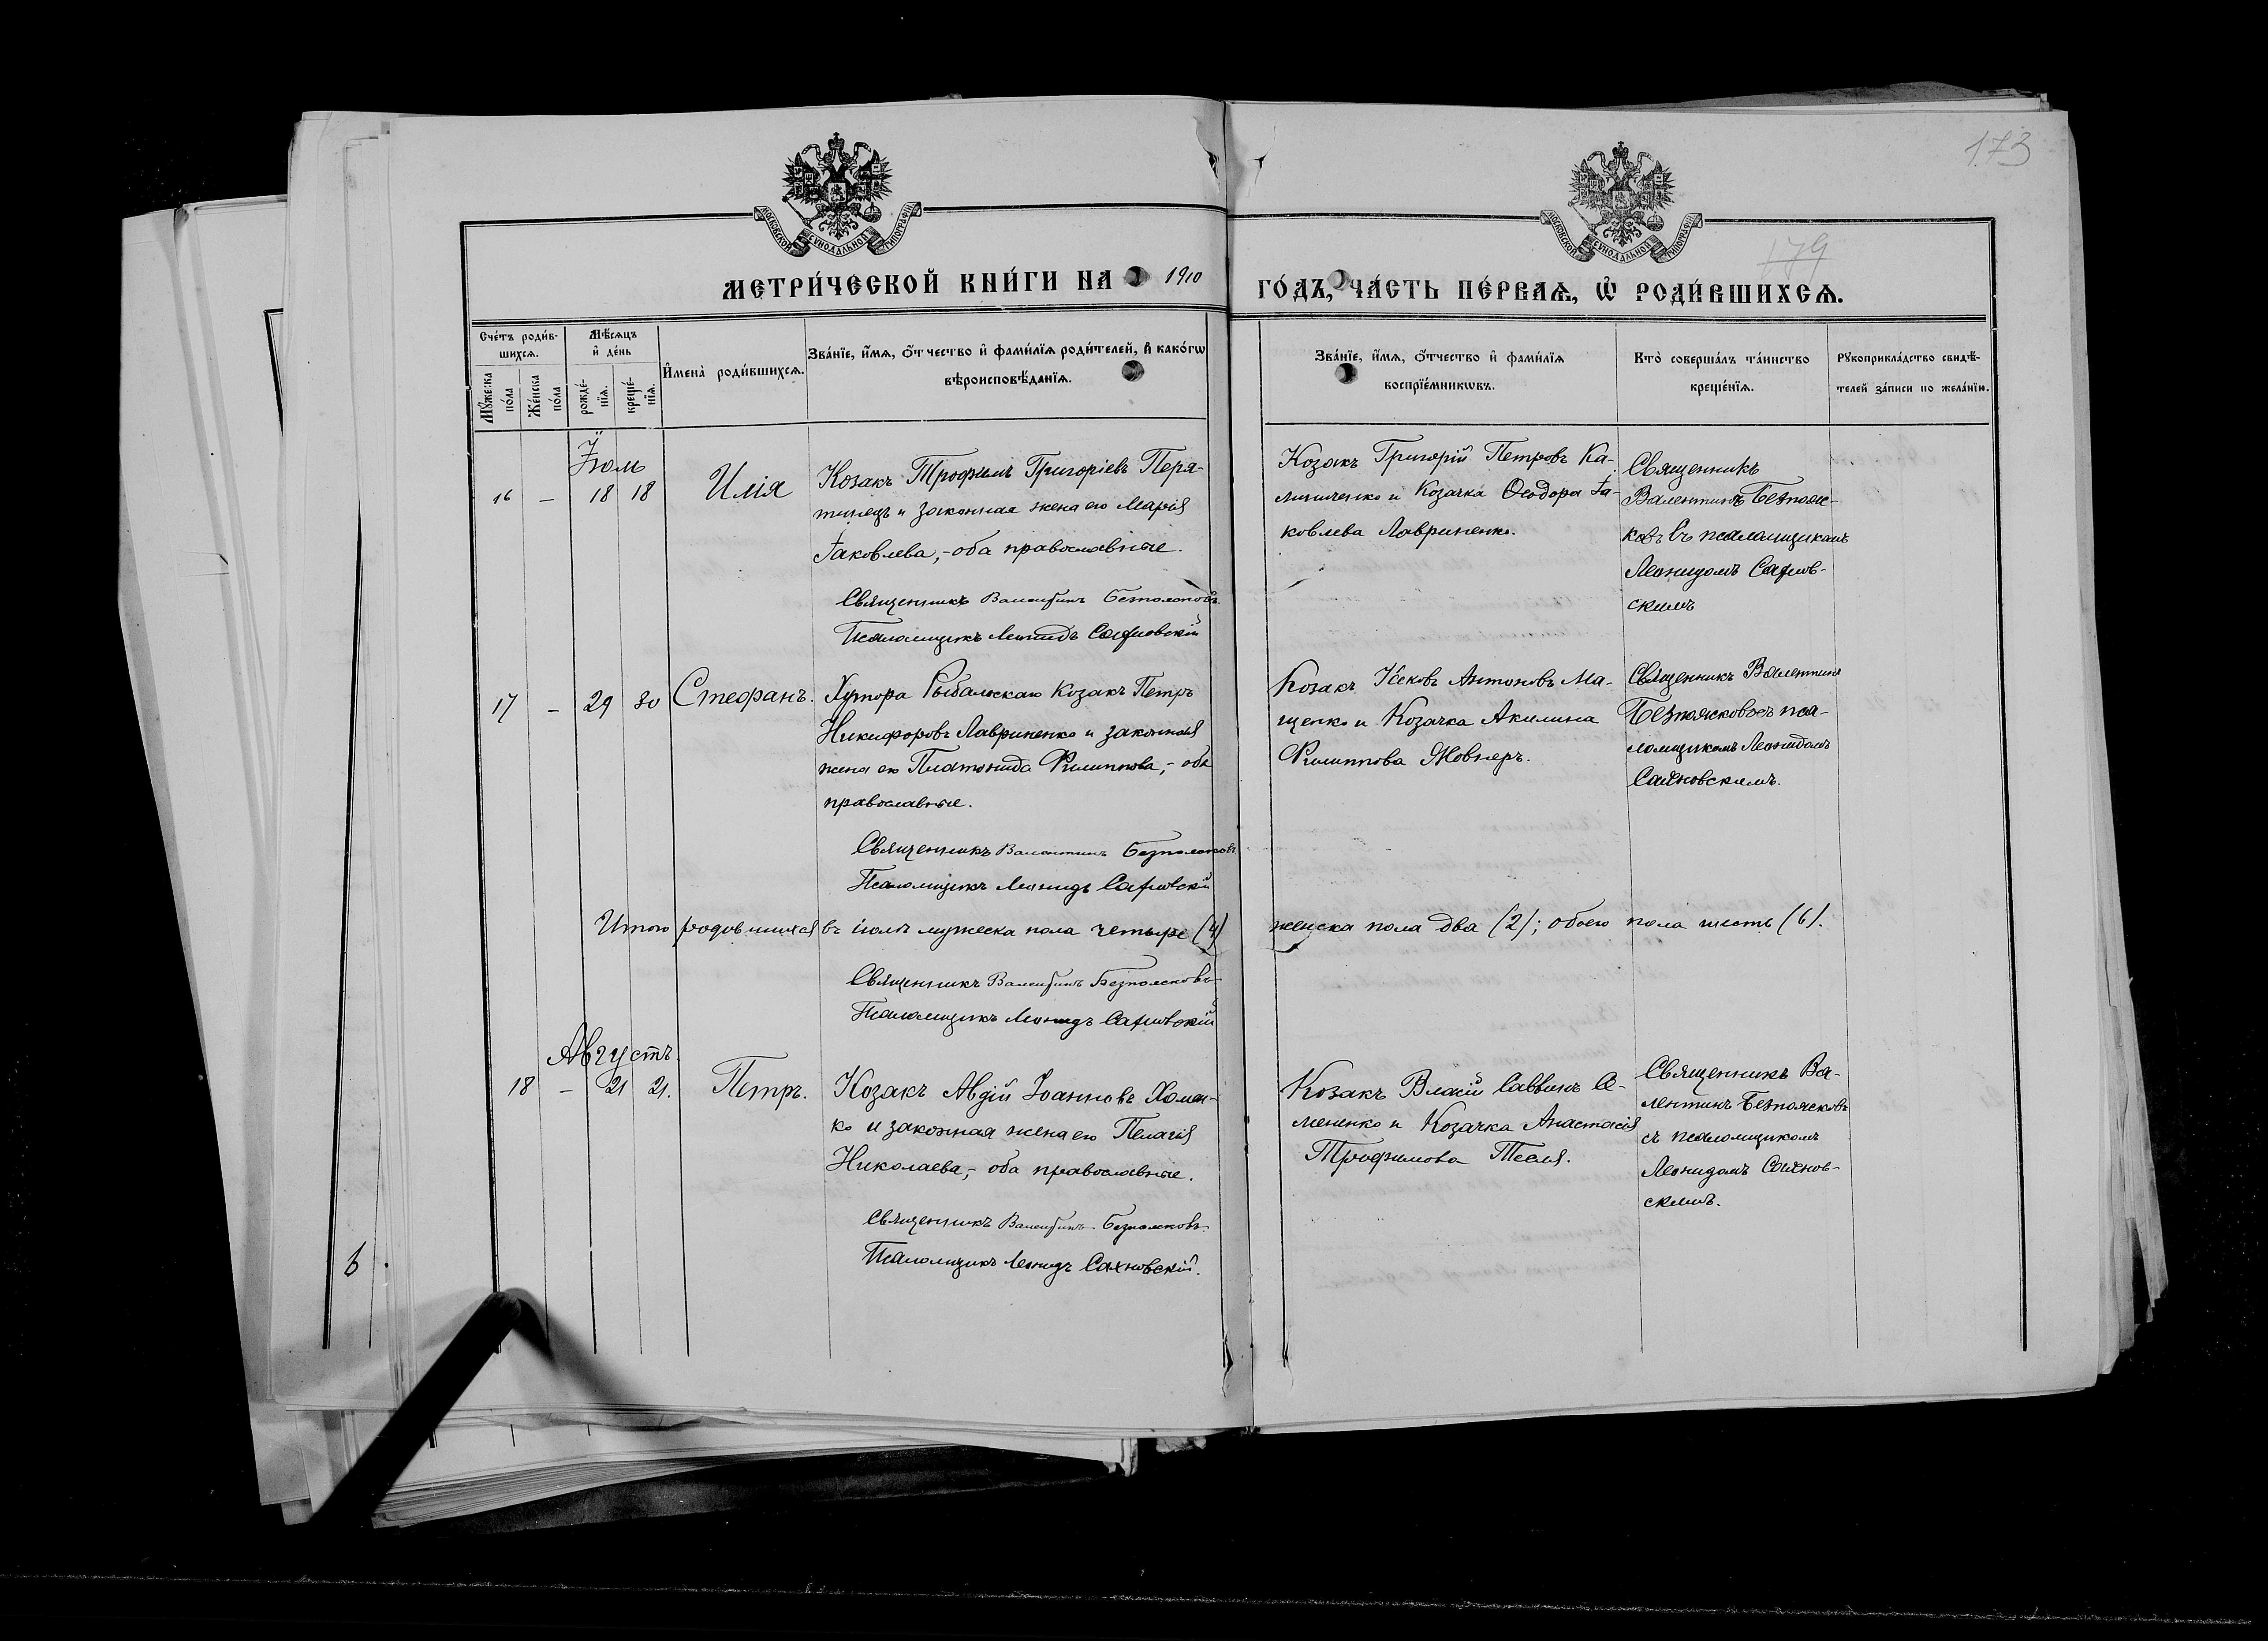 173
179
МОСКОВСКОЙ СѴНОДАЛЬНОЙ ТИПОГРАФІИ
МОСКОВСКОЙ СѴНОДАЛЬНОЙ ТИПОГРАФІИ
МЕТРИ́ЧЕСКОЙ КНИ́ГИ НА 1910 ГО́ДЪ, ЧА́СТЬ ПЕ́РВАѦ, Ѡ҆ РОДИ́ВШИХСѦ.
Сче́тъ роди́в-
шихсѧ.
Мѣ́сѧцъ
и҆ де́нь
Мꙋ́жеска
по́ла
Же́нска
по́ла
рожде́-
нїѧ.
креще́-
нїѧ.
И҆мена̀ роди́вшихсѧ.
Зва́нїе, и҆́мѧ, ѻ҆́тчество и҆ фами́лїѧ роди́телей, и҆ како́гѡ
вѣроисповѣ́данїѧ.
Зва́нїе, и҆́мѧ, ѻ҆́тчество и҆ фами́лїѧ
воспрїе́мникѡвъ.
Кто̀ соверша́лъ та́инство
креще́нїѧ.
Рꙋкоприкла́дство свидѣ́-
телей за́писи по жела́нїю.
Іюль
16 — 18 18 Илія
Козакъ Трофимъ Григоріевъ Перя-
тинецъ и законная жена его Марія
Іаковлева,- оба православные.
Священникъ Валентинъ Безпоясковъ
Псаломщикъ Леонидъ Сахновскій
Козакъ Григорій Петровъ Ка-
линиченко и Козачка Ѳеодора Іа-
ковлева Лавриненко.
Священникъ
Валентинъ Безпояс-
ковъ съ псаломщикомъ
Леонидомъ Сахнов-
скимъ
17 — 29 30 Стефанъ.
Хутора Рыбальскаго Козакъ Петръ
Никифоровъ Лавриненко и законная
жена его Платонида Филиппова,- оба
православные.
Священникъ Валентинъ Безпоясковъ
Псаломщикъ Леонидъ Сахновскій
Козакъ Іаковъ Антоновъ Ма-
щенко и Козачка Акилина
Филиппова Жовнеръ.
Священникъ Валентинъ
Безпоясковъ съ пса-
ломщикомъ Леонидомъ
Сахновскимъ.
Итого родившихся въ іюлѣ мужеска пола четыре (4) женска пола два (2); обоего пола шесть (6).
Священникъ Валентинъ Безпоясковъ
Псаломщикъ Леонидъ Сахновскій
Августъ
18 — 21 21. Петръ.
Козакъ Авдій Іоанновъ Хомен-
ко и законная жена его Пелагія
Николаева,- оба православные.
Священникъ Валентинъ Безпоясковъ
Псаломщикъ Леонидъ Сахновскій.
Козакъ Власій Саввинъ Се-
мененко и Козачка Анастасія
Трофимова Тесля.
Священникъ Ва-
лентинъ Безпоясковъ
съ псаломщикомъ
Леонидомъ Сахнов-
скимъ.